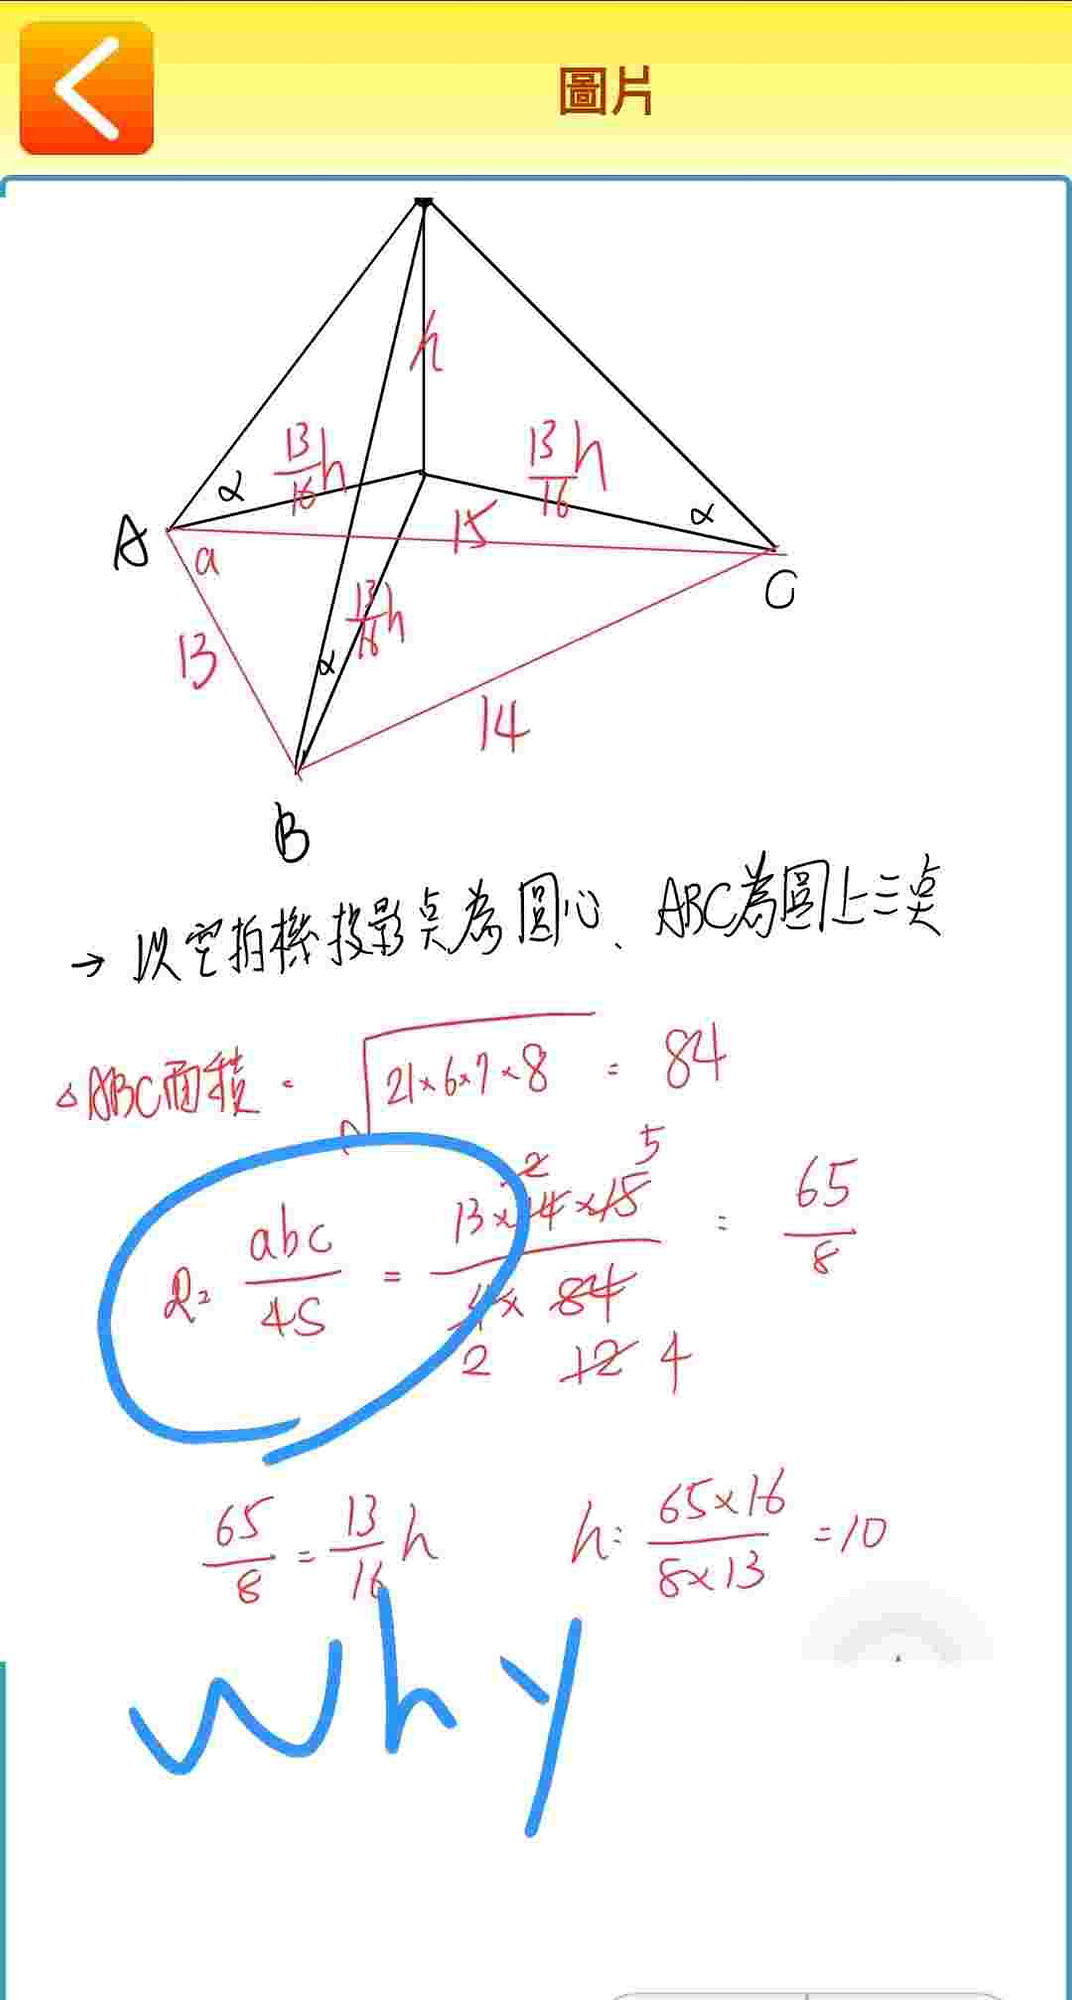 圖片
h
13/16 h
13/16 h
α
15
α
A
a
C
13/16 h
13
α
14
B
→ 以空拍機投影点為圓心、ABC為圓上三点
△ABC面積 = √21×6×7×8 = 84
R = abc/4S = 13×14×15/4×84 = 65/8
2 5
2 12 4
65/8 = 13/16 h h = 65×16/8×13 = 10
Why